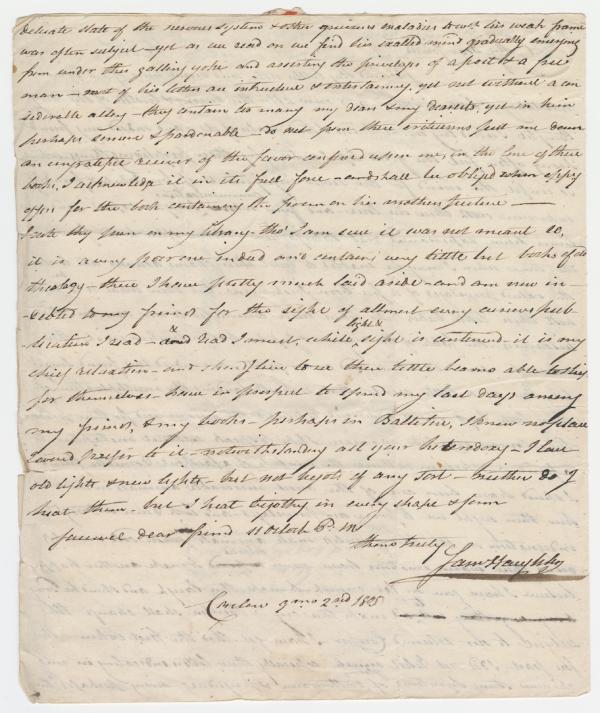 delicate state of the nervous system & other grievous maladies to wch his weak frame
was often subject - yet as we read on we find his exalted mind gradually emerging
from under this galling yoke and asserting the privileges of a poet & a free
man - most of his letters are instructive & entertaining, yet not without a con
siderable alloy - they contain too many my dears & my dearests, yet in him
perhaps sincere & pardonable - do not from these criticisms set me down
an ungrateful receiver of the favor confered upon me, in the loan of these
books, I acknowledge it in its full force - and shall be obliged when oppy
offers for the book containing the poem on his mothers picture -
I note thy pun on my library tho' I am sure it was not meant so,
it is a very poor one indeed and contains very little but books of old
theology - these I have pretty much laid aside - and am now in-
-debted to my friends for the sight of allmost every curious pub-
-lication I read - & read I must, while light & sight is continued - it is my
chief relaxation - and shoud I live to see these little beams able to shift
for themselves - have in prospect to spend my last days among
my friends, & my books - perhaps in Ballitore, I know no place
I woud prefer to it - notwithstanding all your heterodoxy - I love
old lights & new lights - but not bigots of any sort - neither do I
hate them - but I hate bigotry in every shape & form
farewell dear friend 11 oClock P.M
thine truly
Sam Haughton
Carlow 9mo 2nd 1805